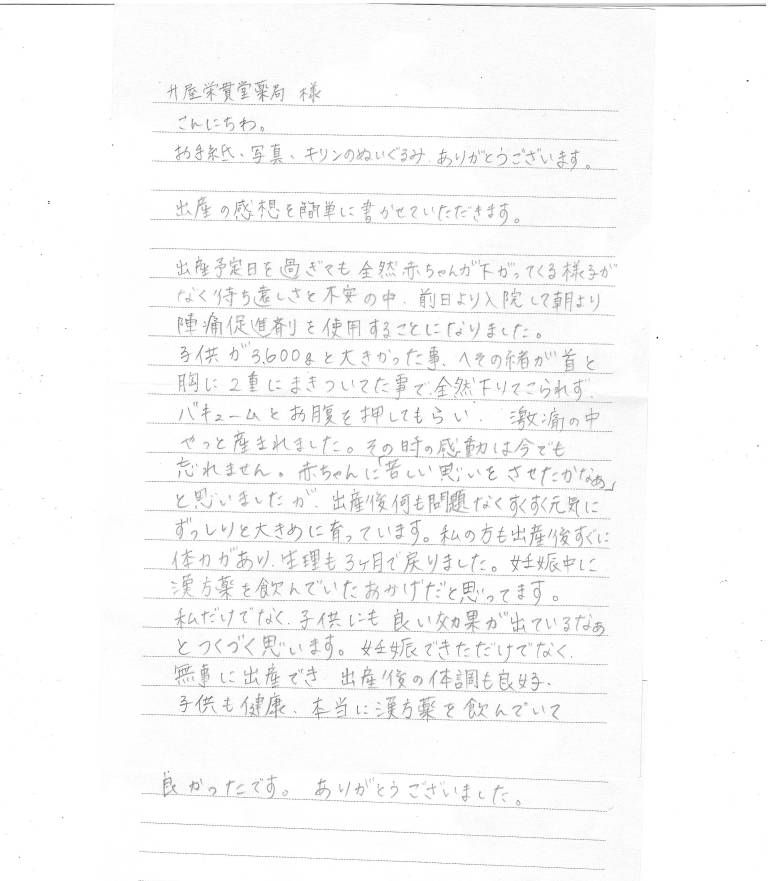 廾屋栄貫堂薬局 様
こんにちわ。
お手紙、写真、キリンのぬいぐるみ、ありがとうございます。
出産の感想を簡単に書かせていただきます。
出産予定日を過ぎても全然赤ちゃんが下がってくる様子が
なく待ち遠しさと不安の中、前日より入院して朝より
陣痛促進剤を使用することになりました。
子供が3,600gと大きかった事、へその緒が首と
胸に2重にまきついてた事で、全然下りてこられず、
バキュームとお腹を押してもらい、激痛の中
やっと産まれました。その時の感動は今でも
忘れません。赤ちゃんに「苦しい思いをさせたかなぁ」
と思いましたが、出産後何も問題なくすくすく元気に
ずっしりと大きめに育っています。私の方も出産後すぐに
体力があり、生理も3ヶ月で戻りました。妊娠中に
漢方薬を飲んでいたおかげだと思ってます。
私だけでなく、子供にも良い効果が出ているなぁ
とつくづく思います。妊娠できただけでなく、
無事に出産でき、出産後の体調も良好、
子供も健康、本当に漢方薬を飲んでいて
良かったです。ありがとうございました。